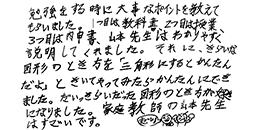 勉強をする時に大事なポイントを教えて
もらいました。1つ目は教科書、2つ目は授業
3つ目は内申書、山本先生はわかりやすく
説明してくれました。それに、きらいな
図形のとき方を「三角形にするとかんたん
だよ」ときいてやってみたらかんたんにでき
ました。だいっきらいだった図形のとき方が好き
になりました。家庭教師の山本先生
はすごいです。